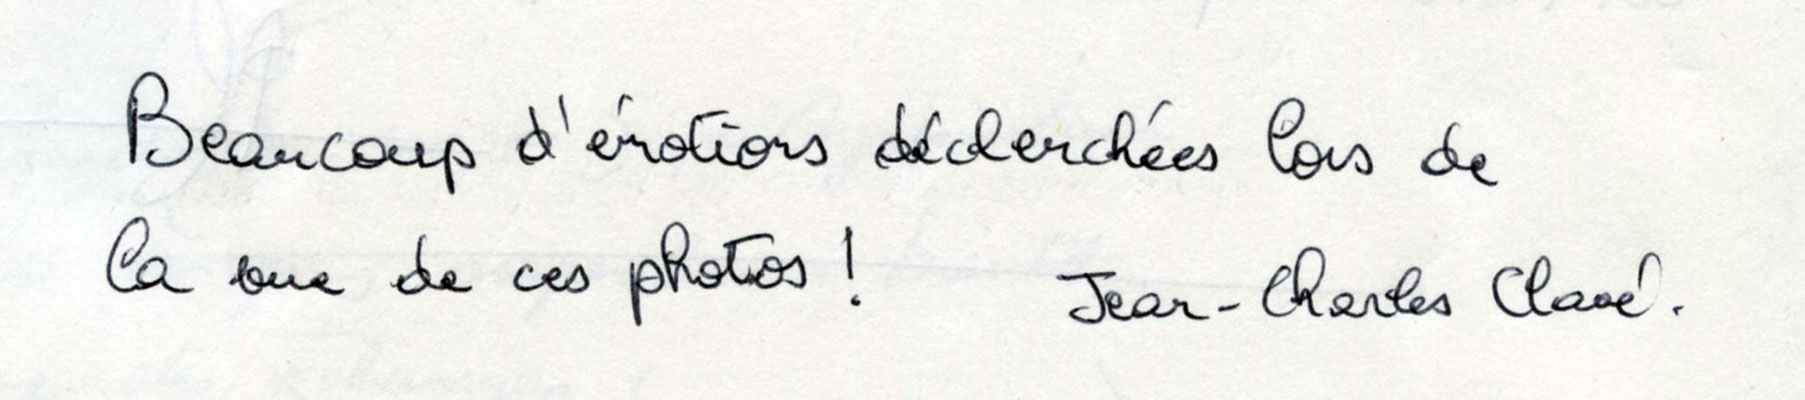 Beaucoup d'émotions déclenchées lors de
la vue de ces photos ! Jean-Charles Clavé.